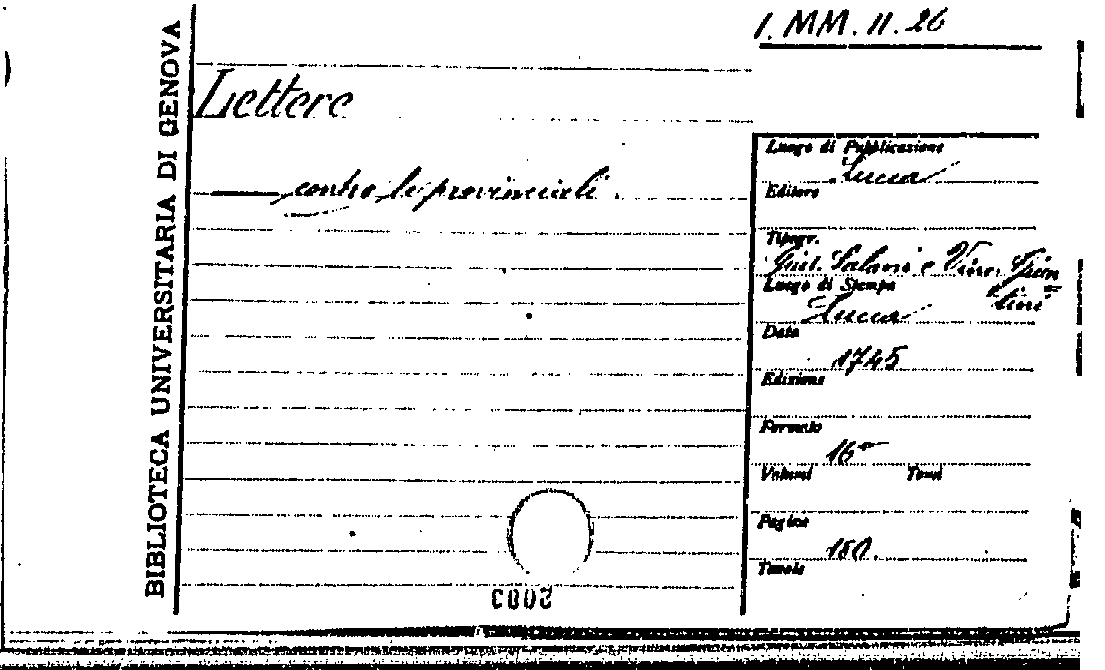 1. MM. 11. 26
BIBLIOTECA UNIVERSITARIA DI GENOVA
Lettere
contro le provinciali.
Luogo di Pubblicazione
Lucca
Editore
Tipogr.
Salani e Vinc. Giun
tini
Luogo di Stampa
Lucca
Data
1745
Edizione
Formato
16°
Volumi Tomi
Pagine
150.
Tavole
2083